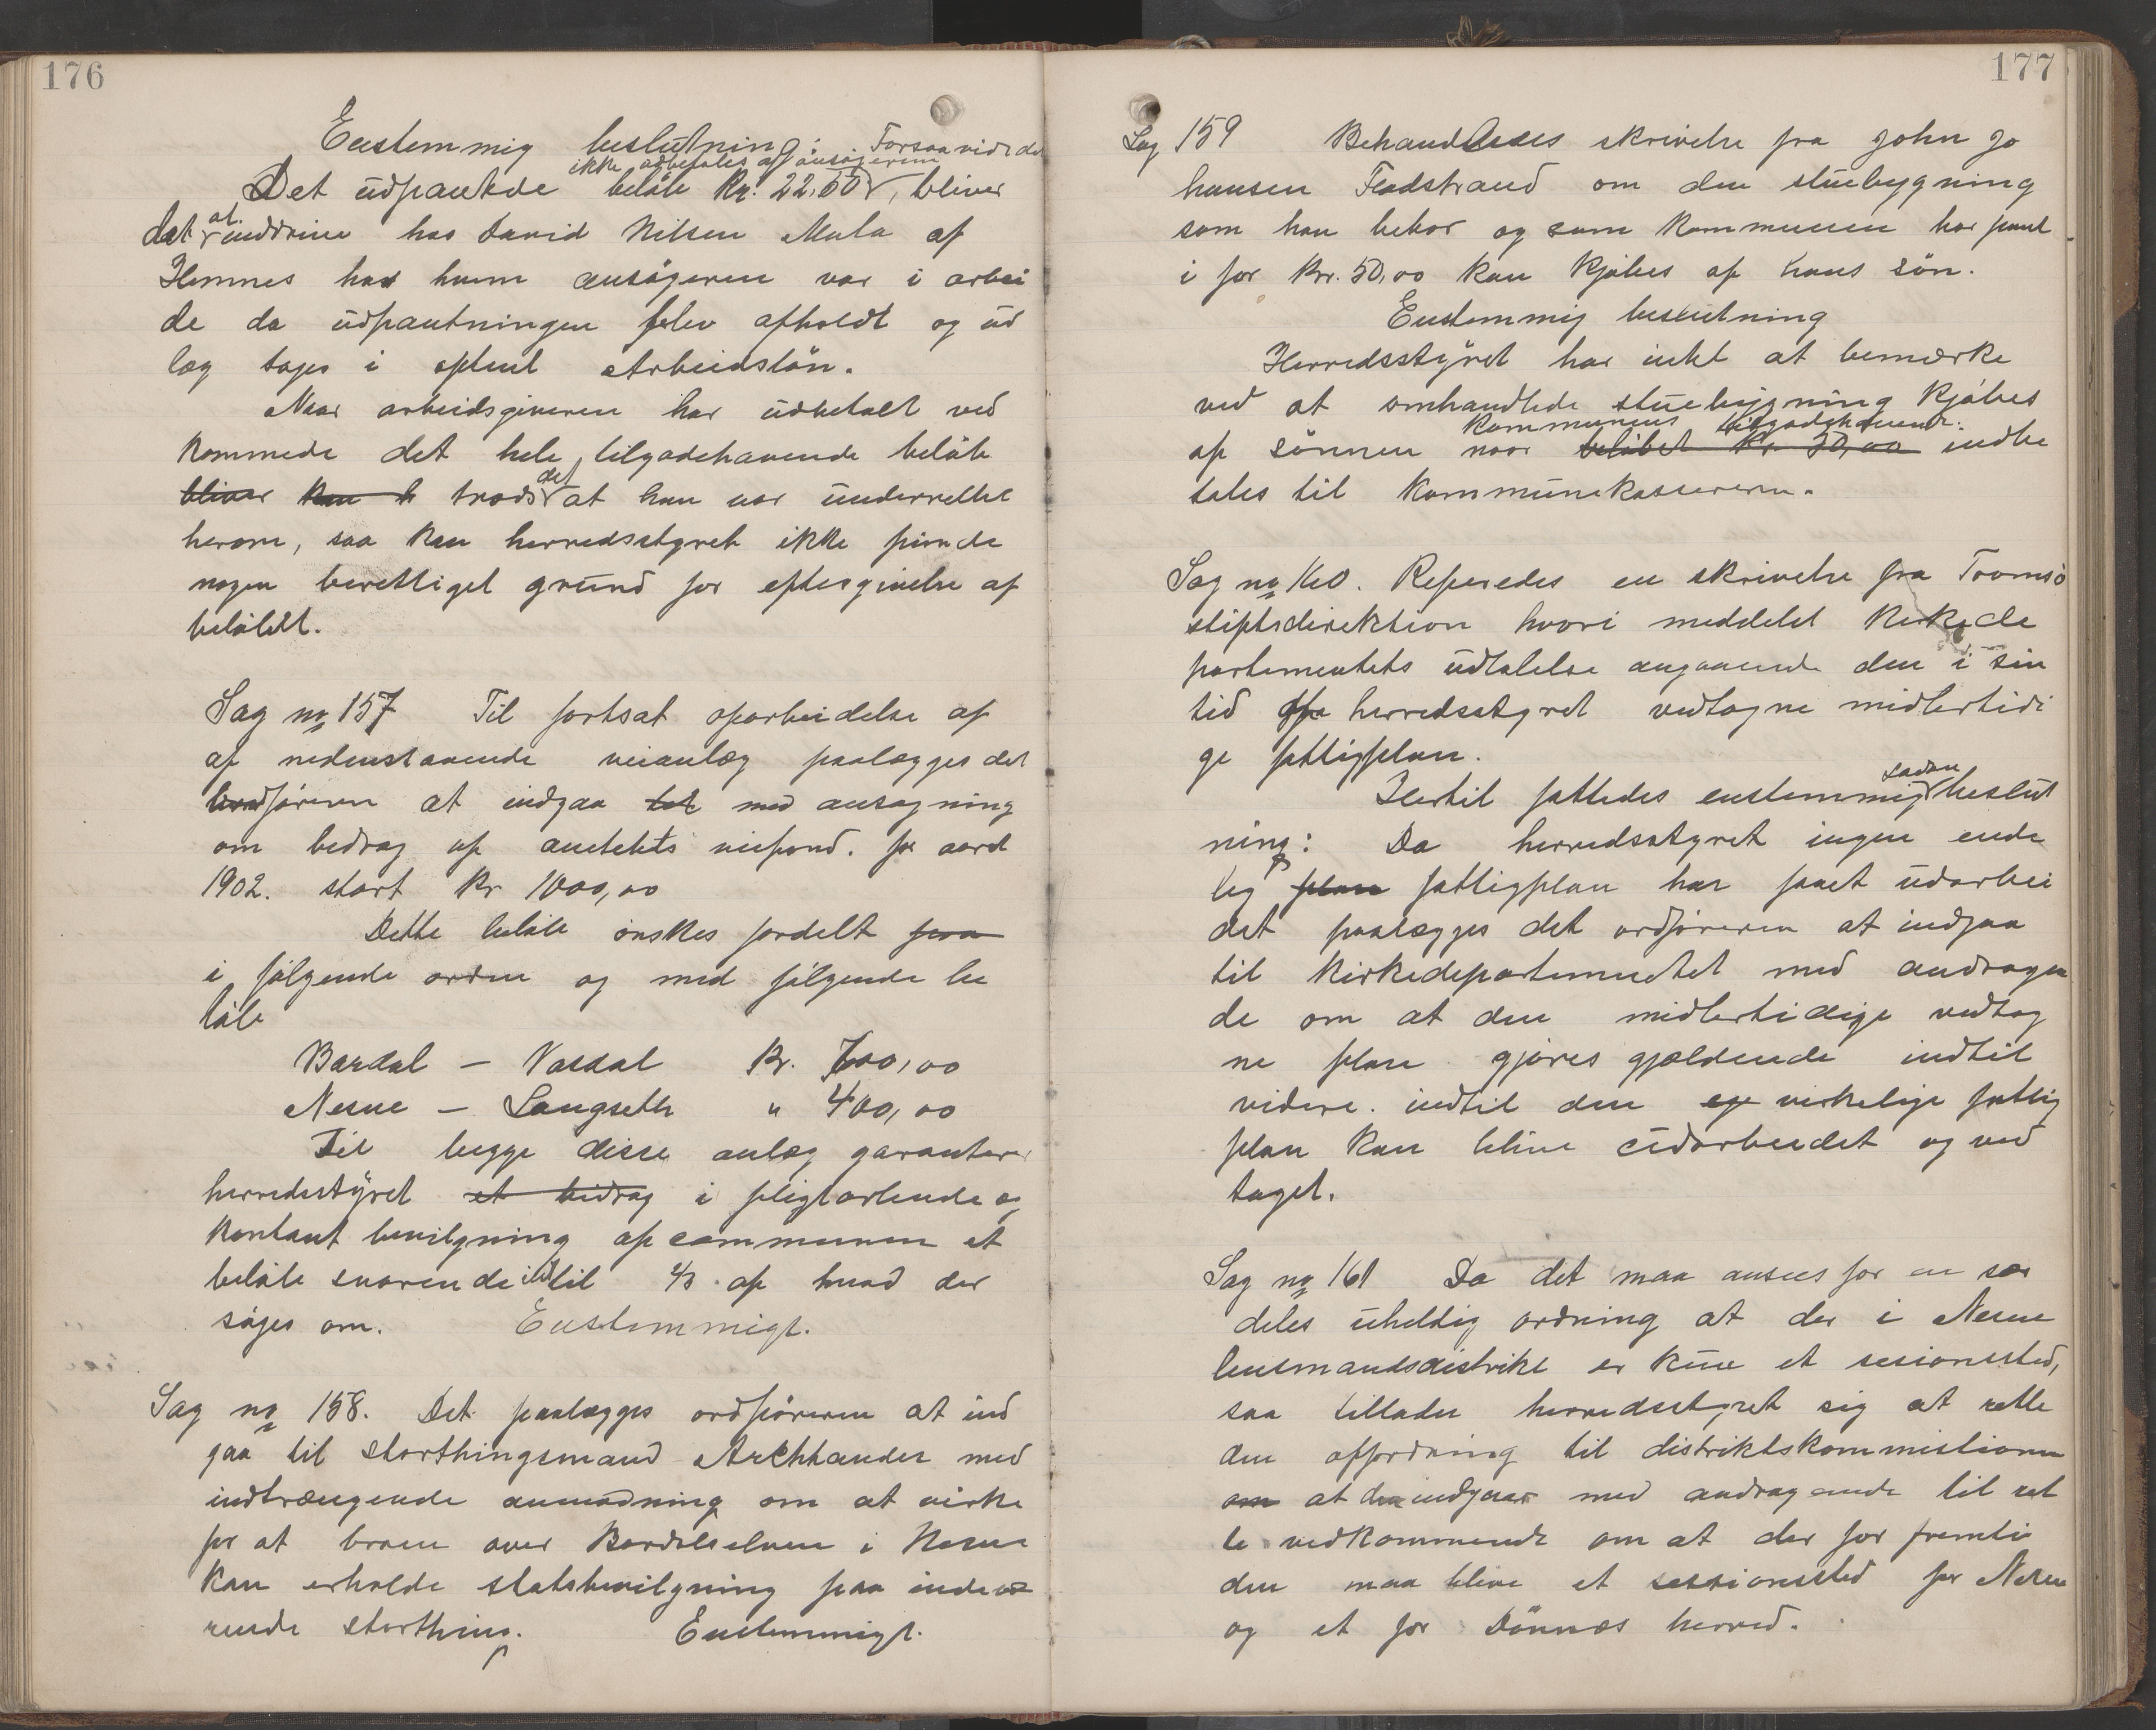 176
Eenstemmig beslutning: Forsaavidt det
ikke udbetales af ansøgeren
Det udpantede beløb Kr. 22,50, bliver
det at inddrive hos David Nilsen Mula af
Hemnes hos hvem ansøgeren var i arbei
de da udpantningen blev afholdt og ud
læg toges i optent Arbeidsløn.
Naar arbeidsgiveren har udbetalt ved
kommede det hele tilgodehavende beløb
bliver kan h trods det at han var underrettet
herom, saa kan herredsstyret ikke finde
nogen berettiget grund for eftergivelse af
beløbet.
Sag no 157 Til fortsat oparbeidelse af
af nedenstaaende veianlæg paalægges det
ordføreren at indgaa til med ansøgning
om bedrag af amtets veifond. for aaret
1902. stort Kr 1000,00
Dette beløb ønskes fordelt paa
i følgende orden og med følgende be
løb
Bardal – Vardal Kr. 700,00
Nesne – Langseth " 400,00
Til begge disse anlæg garanterer
herredsstyret et bidrag i pligtarbeide og
kontant bevilgning af communen et
beløb svarende indtil 1/3 af hvad der
søges om. Enstemmigt.
Sag no 158. Det paalægges ordføreren at ind
gaa til storthingsmand Archtander med
indtrængende anmodning om at virke
for at broen over Bardalselven i Nesne
kan erholde statsbevilgning paa indevæ
rende storthing. Enstemmigt.
177
Sag 159 Behandledes skrivelse fra John Jo
hansen Fladstrand om den stuebygning
som han bebor og som kommunen har pant
i for Kr. 50,00 kan kjøbes af hans søn.
Enstemmig beslutning
Herredsstyret har intet at bemærke
ved at omhandlede stuebygning kjøbes
kommunens tilgodehavende
af sønnen naar beløbet Kr 50,00 indbe
tales til kommunekassereren.
Sag no 160. Refererdes en skrivelse fra Tromsø
stiftsdirektion hvori meddelet kirkede
partementets udtalelse angaaende den i sin
tid af herredsstyret vedtagne midlertidi
ge fattigplan.
Hertil fattedes enstemmig saadan beslut
ning: Da herredsstyret ingen ende
lig plan fattigplan har faaet udarbei
det paalægges det ordføreren at indgaa
til Kirkedepartementet med andragen
de om at den midlertidige vedtag
ne plan gjøres gjældende indtil
videre. indtil den eg virkelige fattig
plan kan blive udarbeidet og ved
taget.
Sag no 161 Da det maa ansees for en sær
deles uheldig ordning at der i Nesne
lensmandsdistrikt er kun et sesionssted,
saa tillader herredsstyret sig at rette
den opfordring til distriktskommissionen
om at den indgaar med andragende til ret
te vedkommende om at der for fremti
den maa blive et sessionssted for Nesne
og et for Dønnæs herred.